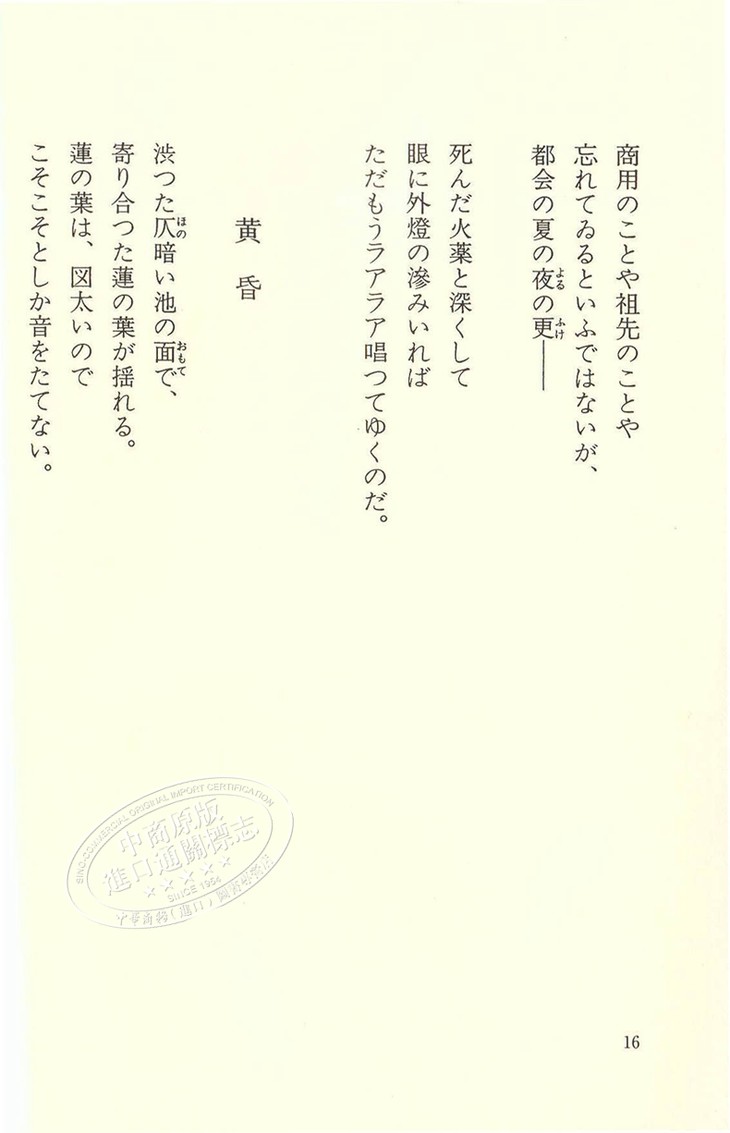 商用のことや祖先のことや
忘れてゐるといふではないが、
都会の夏の夜の更――
死んだ火薬と深くして
眼に外燈の滲みいれば
ただもうラアラア唱つてゆくのだ。
黄昏
渋つた仄暗い池の面で、
寄り合つた蓮の葉が揺れる。
蓮の葉は、図太いので
こそこそとしか音をたてない。
16
SINO-COMMERCIAL ORIGINAL IMPORT CERTIFICATION
中商原版
進口通關標志
★★★★★
SINCE 1954